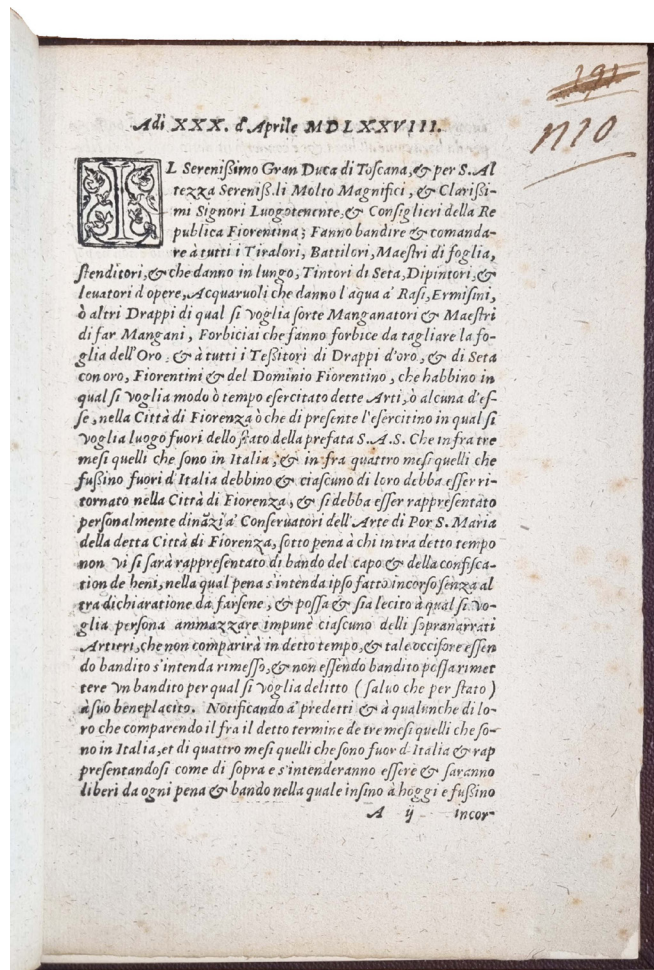 191
n 10
Adi XXX. d'Aprile MDLXXVIII.
IL Sereniſſimo Gran Duca di Toſcana, & per S. Al
tezza Sereniſſ. li Molto Magnifici, & Clariſſi-
mi Signori Luogotenente, & Conſiglieri della Re
publica Fiorentina; Fanno bandire & comanda-
re à tutti i Tiralori, Battilori, Maeſtri di foglia,
ſtenditori, & che danno in lungo, Tintori di Seta, Dipintori, &
levatori d'opere, Acquaruoli che danno l'aqua a' Raſi, Ermiſini,
ò altri Drappi di qual ſi voglia ſorte Manganatori & Maeſtri
di far Mangani, Forbiciai che fanno forbice da tagliare la fo-
glia dell'Oro, & à tutti i Teſſitori di Drappi d'oro, & di Seta
con oro, Fiorentini & del Dominio Fiorentino, che habbino in
qual ſi voglia modo ò tempo eſercitato dette Arti, ò alcuna d'eſ-
ſe, nella Città di Fiorenza ò che di preſente l'eſercitino in qual ſi
voglia luogo fuori dello ſtato della prefata S. A. S. Che in fra tre
meſi quelli che ſono in Italia, & in fra quattro meſi quelli che
fuſſino fuori d'Italia debbino & ciaſcuno di loro debba eſſer ri-
tornato nella Città di Fiorenza, & ſi debba eſſer rappreſentato
perſonalmente dinãzi a' Conſeruatori dell'Arte di Por S. Maria
della detta Città di Fiorenza, ſotto pena à chi in tra detto tempo
non vi ſi ſarà rappreſentato di bando del capo & della confiſca-
tion de beni, nella qual pena s'intenda ipſo fatto incorſo ſenza al
tra dichiaratione da farſene, & poſſa & ſia lecito à qual ſi vo-
glia perſona ammazzare impune ciaſcuno delli ſopranarrati
Artieri, che non comparirà in detto tempo, & tale occiſore eſſen
do bandito s'intenda rimeſſo, & non eſſendo bandito poſſa rimet
tere vn bandito per qual ſi voglia delitto (ſaluo che per ſtato)
à ſuo beneplacito. Notificando a' predetti & à qualunche di lo-
ro che comparendo il fra il detto termine de tre meſi quelli che ſo-
no in Italia, et di quattro meſi quelli che ſono fuor d'Italia & rap
preſentandoſi come di ſopra e s'intenderanno eſſere & ſaranno
liberi da ogni pena & bando nella quale inſino à hoggi e fuſſino
A ij incor-